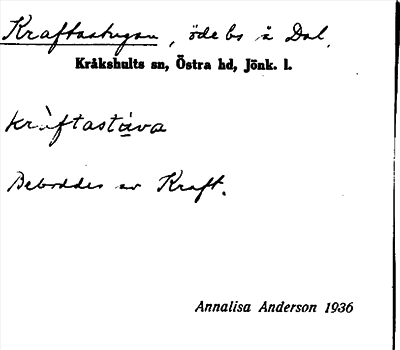 Kraftastugan, öde bs å Dal.
Kråkshults sn, Östra hd, Jönk. l.
kràftastäva
Beboddes av Kraft.
Annalisa Anderson 1936